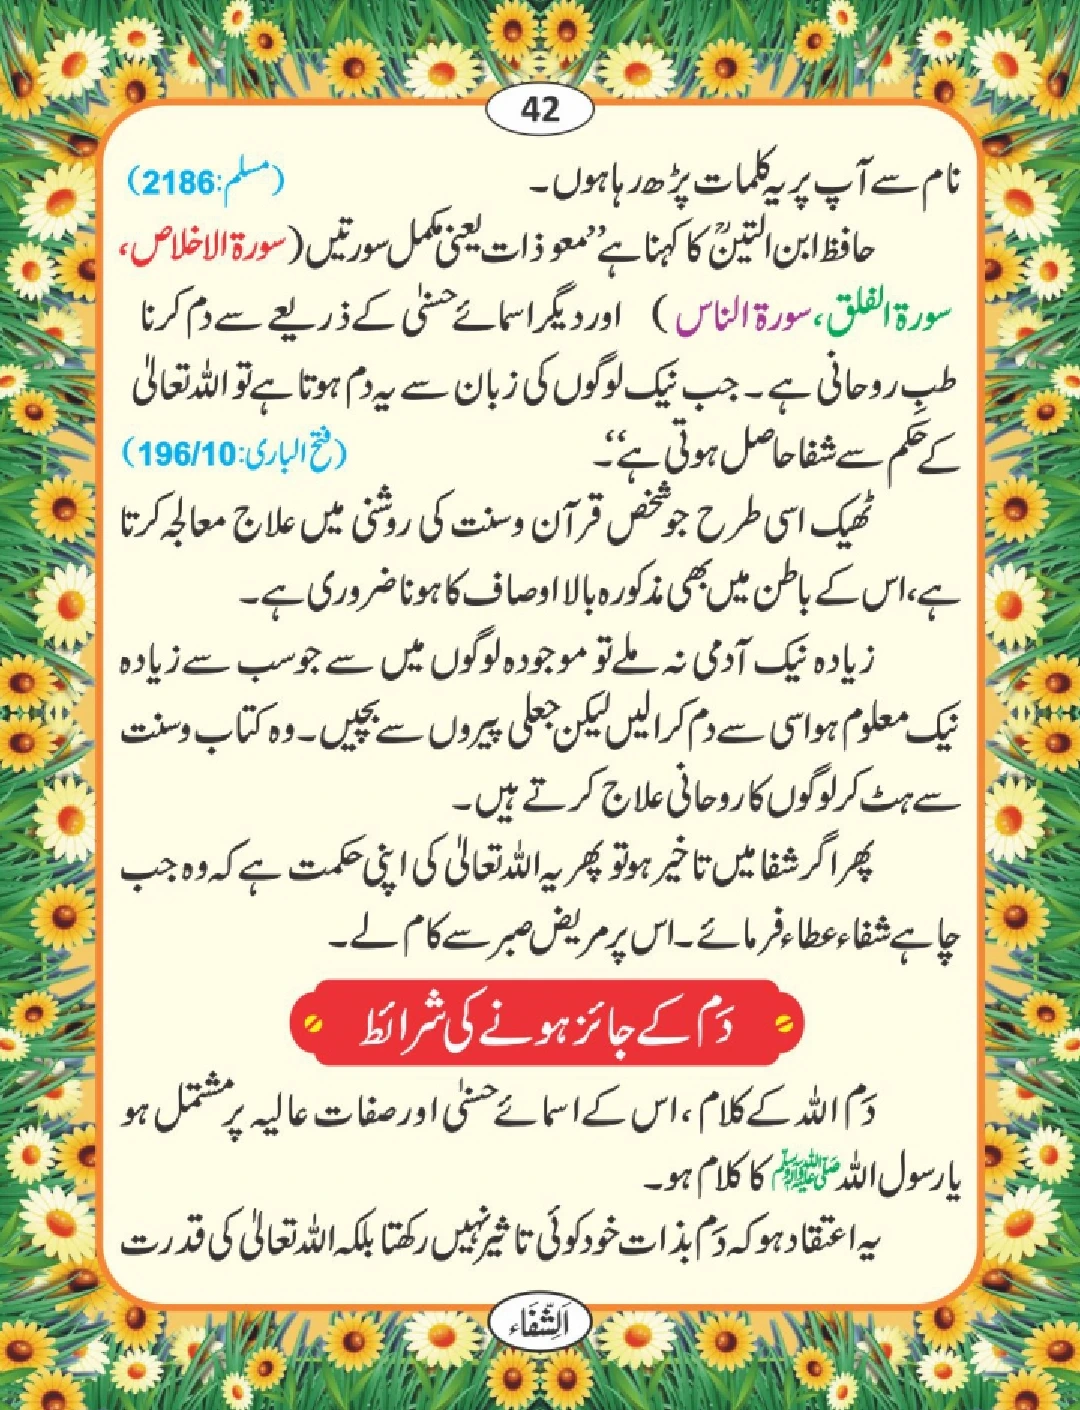 42
نام سے آپ پر یہ کلمات پڑھ رہا ہوں۔ (مسلم:2186)
حافظ ابن التینؒ کا کہنا ہے ”معوذات یعنی مکمل سورتیں (سورۃ الاخلاص،
سورۃ الفلق، سورۃ الناس) اور دیگر اسمائے حسنیٰ کے ذریعے سے دم کرنا
طبِ روحانی ہے۔ جب نیک لوگوں کی زبان سے یہ دم ہوتا ہے تو اللہ تعالیٰ
کے حکم سے شفا حاصل ہوتی ہے“۔ (فتح الباری:196/10)
ٹھیک اسی طرح جو شخص قرآن وسنت کی روشنی میں علاج معالجہ کرتا
ہے، اس کے باطن میں بھی مذکورہ بالا اوصاف کا ہونا ضروری ہے۔
زیادہ نیک آدمی نہ ملے تو موجودہ لوگوں میں سے جو سب سے زیادہ
نیک معلوم ہو اسی سے دم کرا لیں لیکن جعلی پیروں سے بچیں۔ وہ کتاب وسنت
سے ہٹ کر لوگوں کا روحانی علاج کرتے ہیں۔
پھر اگر شفا میں تاخیر ہو تو پھر یہ اللہ تعالیٰ کی اپنی حکمت ہے کہ وہ جب
چاہے شفاء عطاء فرمائے۔ اس پر مریض صبر سے کام لے۔
دَم کے جائز ہونے کی شرائط
دَم اللہ کے کلام، اس کے اسمائے حسنیٰ اور صفات عالیہ پر مشتمل ہو
یا رسول اللہ ﷺ کا کلام ہو۔
یہ اعتقاد ہو کہ دَم بذات خود کوئی تاثیر نہیں رکھتا بلکہ اللہ تعالیٰ کی قدرت
اَلشِّفَاء